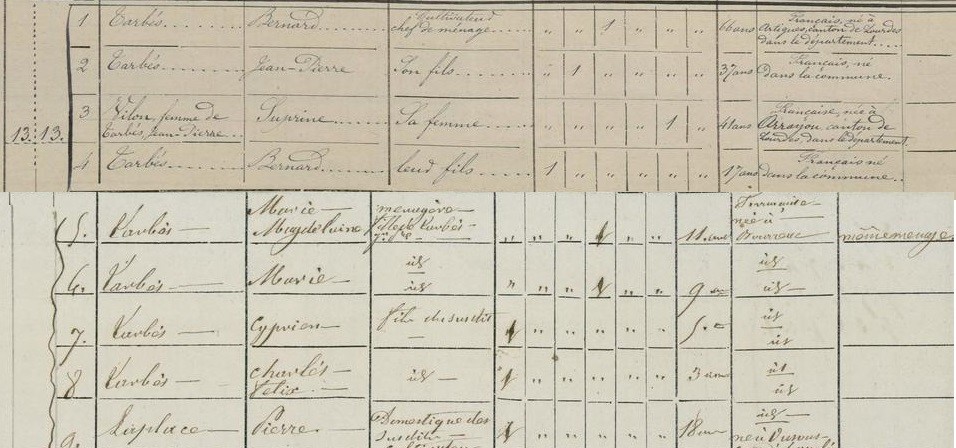 1 Tarbés Bernard Cultivateur chef de ménage " " 1 " " " 66 ans Français, né à Artigues, canton de Lourdes dans le département
2 Tarbés Jean-Pierre Son fils " 1 " " " " 37 ans Français, né dans la commune.
13. 13. 3 femme de Tarbés, Jean-Pierre Suprine Sa femme " " " " 1 " 41 ans Française, née à canton de Lourdes, dans le département
4 Tarbés Bernard leurs fils 1 " " " " " 17 ans Français né dans la commune
5. Tarbés Marie Magdelaine menagère " " " 1 " " 11 ans Française née à même menage
6. Tarbés Marie id id " " " 1 " " 9 ans id id
7. Tarbés Cyprien fils du susdit 1 " " " " " 5 ans id id
8 Tarbés Charles Felix id 1 " " " " " 3 ans id id
9. Laplace Pierre Domestique des susdits 1 " " " " " 18 ans id né à